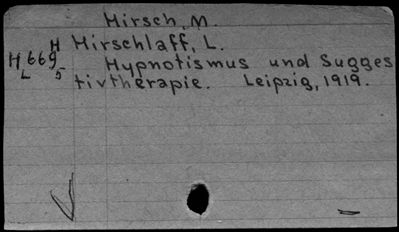 Hirsch, M.
H Hirschlaff, L.
H669 Hypnotismus und Sugges
L 5 tivtherapie. Leipzig, 1919.